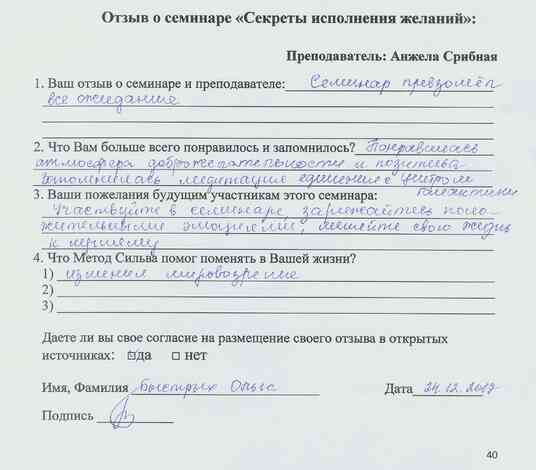 Отзыв о семинаре «Секреты исполнения желаний»:
Преподаватель: Анжела Срибная
1. Ваш отзыв о семинаре и преподавателе: Семинар превзошёл
все ожидания
2. Что Вам больше всего понравилось и запомнилось? Понравилась
атмосфера доброжелательности и позитива
запомнилась медитация единения с центром
галактики
3. Ваши пожелания будущим участникам этого семинара:
Участвуйте в семинаре, заряжайтесь поло-
жительными эмоциями, меняйте свою жизнь
к лучшему
4. Что Метод Сильва помог поменять в Вашей жизни?
1) изменил мировозрение
2)
3)
Даете ли вы свое согласие на размещение своего отзыва в открытых
источниках: да нет
Имя, Фамилия Быстрых Ольга Дата 24.12.2017
Подпись
40